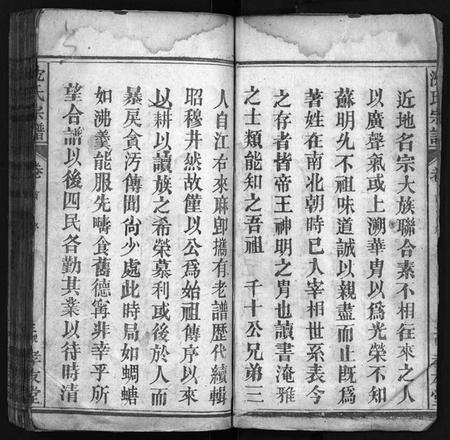 近地名宗大族聯合素不相往來之人
以廣聲氣或上溯華胄以爲光榮不知
蘇明允不祖味道誠以親盡而止旣爲
著姓在南北朝時已入宰相世系表今
之存者皆帝王神明之胄也讀書淹雅
之士類能知之吾祖 千十公兄弟三
人自江右來麻卽攜有老譜歷代續輯
昭穆井然故僅以公爲始祖傳序以來
以耕以讀族之希榮慕利或後於人而
暴戾貪污傳聞尙少處此時局如蜩螗
如沸羹能服先疇食舊德寗非幸乎所
望合譜以後四民各勤其業以待時清
沈氏宗譜
卷